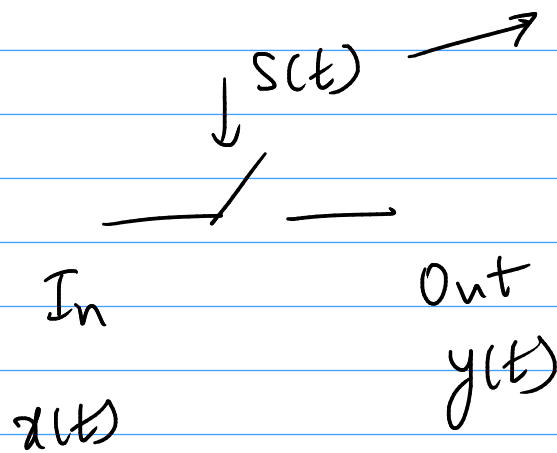 S(t)
In
Out
x(t)
y(t)